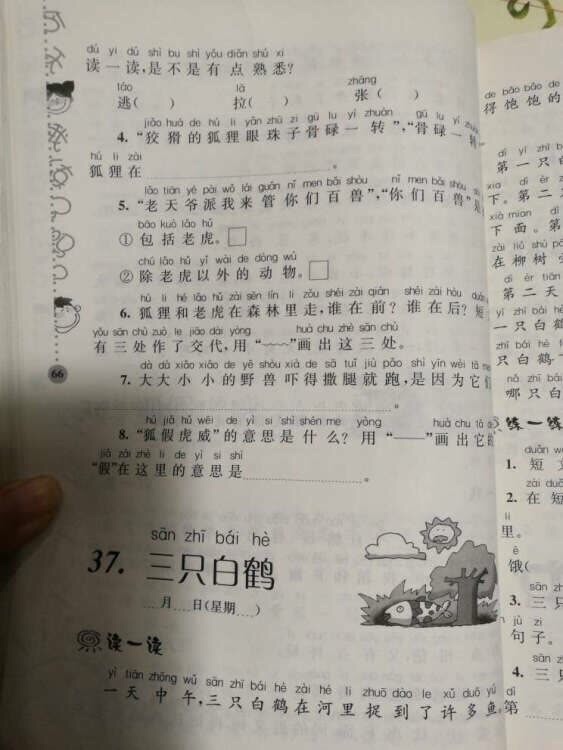 dú yi dú shì bu shì yǒu diǎn shú xi
读一读,是不是有点熟悉?
táo lā zhāng
逃( ) 拉( ) 张( )
jiǎo huá de hú li yǎn zhū zi gū lu yí zhuàn gū lu yí zhuàn
4. “狡猾的狐狸眼珠子骨碌一转”,“骨碌一转”
hú li zài
狐狸在 。
lǎo tiān yé pài wǒ lái guǎn nǐ men bǎi shòu nǐ men bǎi shòu
5. “老天爷派我来管你们百兽”,“你们百兽”是
bāo kuò lǎo hǔ
①包括老虎。□
chú lǎo hǔ yǐ wài de dòng wù
②除老虎以外的动物。□
hú li hé lǎo hǔ zài sēn lín li zǒu shéi zài qián shéi zài hòu
6. 狐狸和老虎在森林里走,谁在前?谁在后?短
yǒu sān chù zuò le jiāo dài yòng huà chu zhè sān chù
有三处作了交代,用“﹏﹏”画出这三处。
dà dà xiǎo xiǎo de yě shòu xià de sā tuǐ jiù pǎo shì yīn wèi tā men
7. 大大小小的野兽吓得撒腿就跑,是因为它们
。
hú jiǎ hǔ wēi de yì si shì shén me yòng huà chu
8. “狐假虎威”的意思是什么?用“——”画出它
jiǎ zài zhè li de yì si shì
“假”在这里的意思是 。
66
sān zhī bái hè
37. 三只白鹤
月 日(星期 )
读一读
yì tiān zhōng wǔ sān zhī bái hè zài hé li zhuō dào le xǔ duō yú dì
一天中午,三只白鹤在河里捉到了许多鱼,第
de bǎo bǎo de
得饱饱的
dì yī zhī
第一只白
xià dì èr
下。第二
xià mian dì
下面。第
zài liǔ shù
在柳树
dì èr tiān
第二天
一只白鹤
只白鹤
nǎ zhī
哪只白
练一练
duǎn
1. 短文
zài
2. 在短
里。
è
饿(
sān
3. 三只
jù zi
句子。
sān
4. 三只